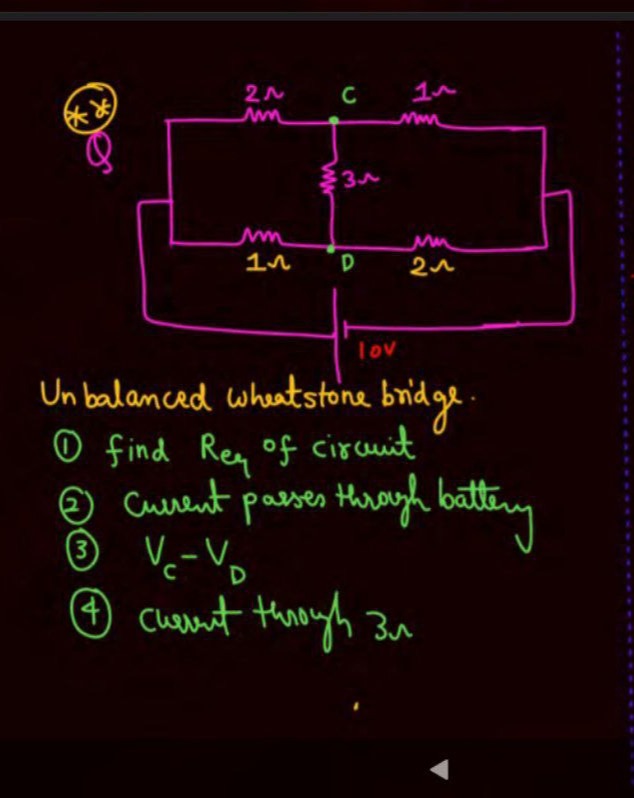 **
Q
2Ω C 1Ω
3Ω
1Ω D 2Ω
10V
Unbalanced wheatstone bridge.
① find Req of circuit
② Current passes through battery
③ VC - VD
④ current through 3Ω